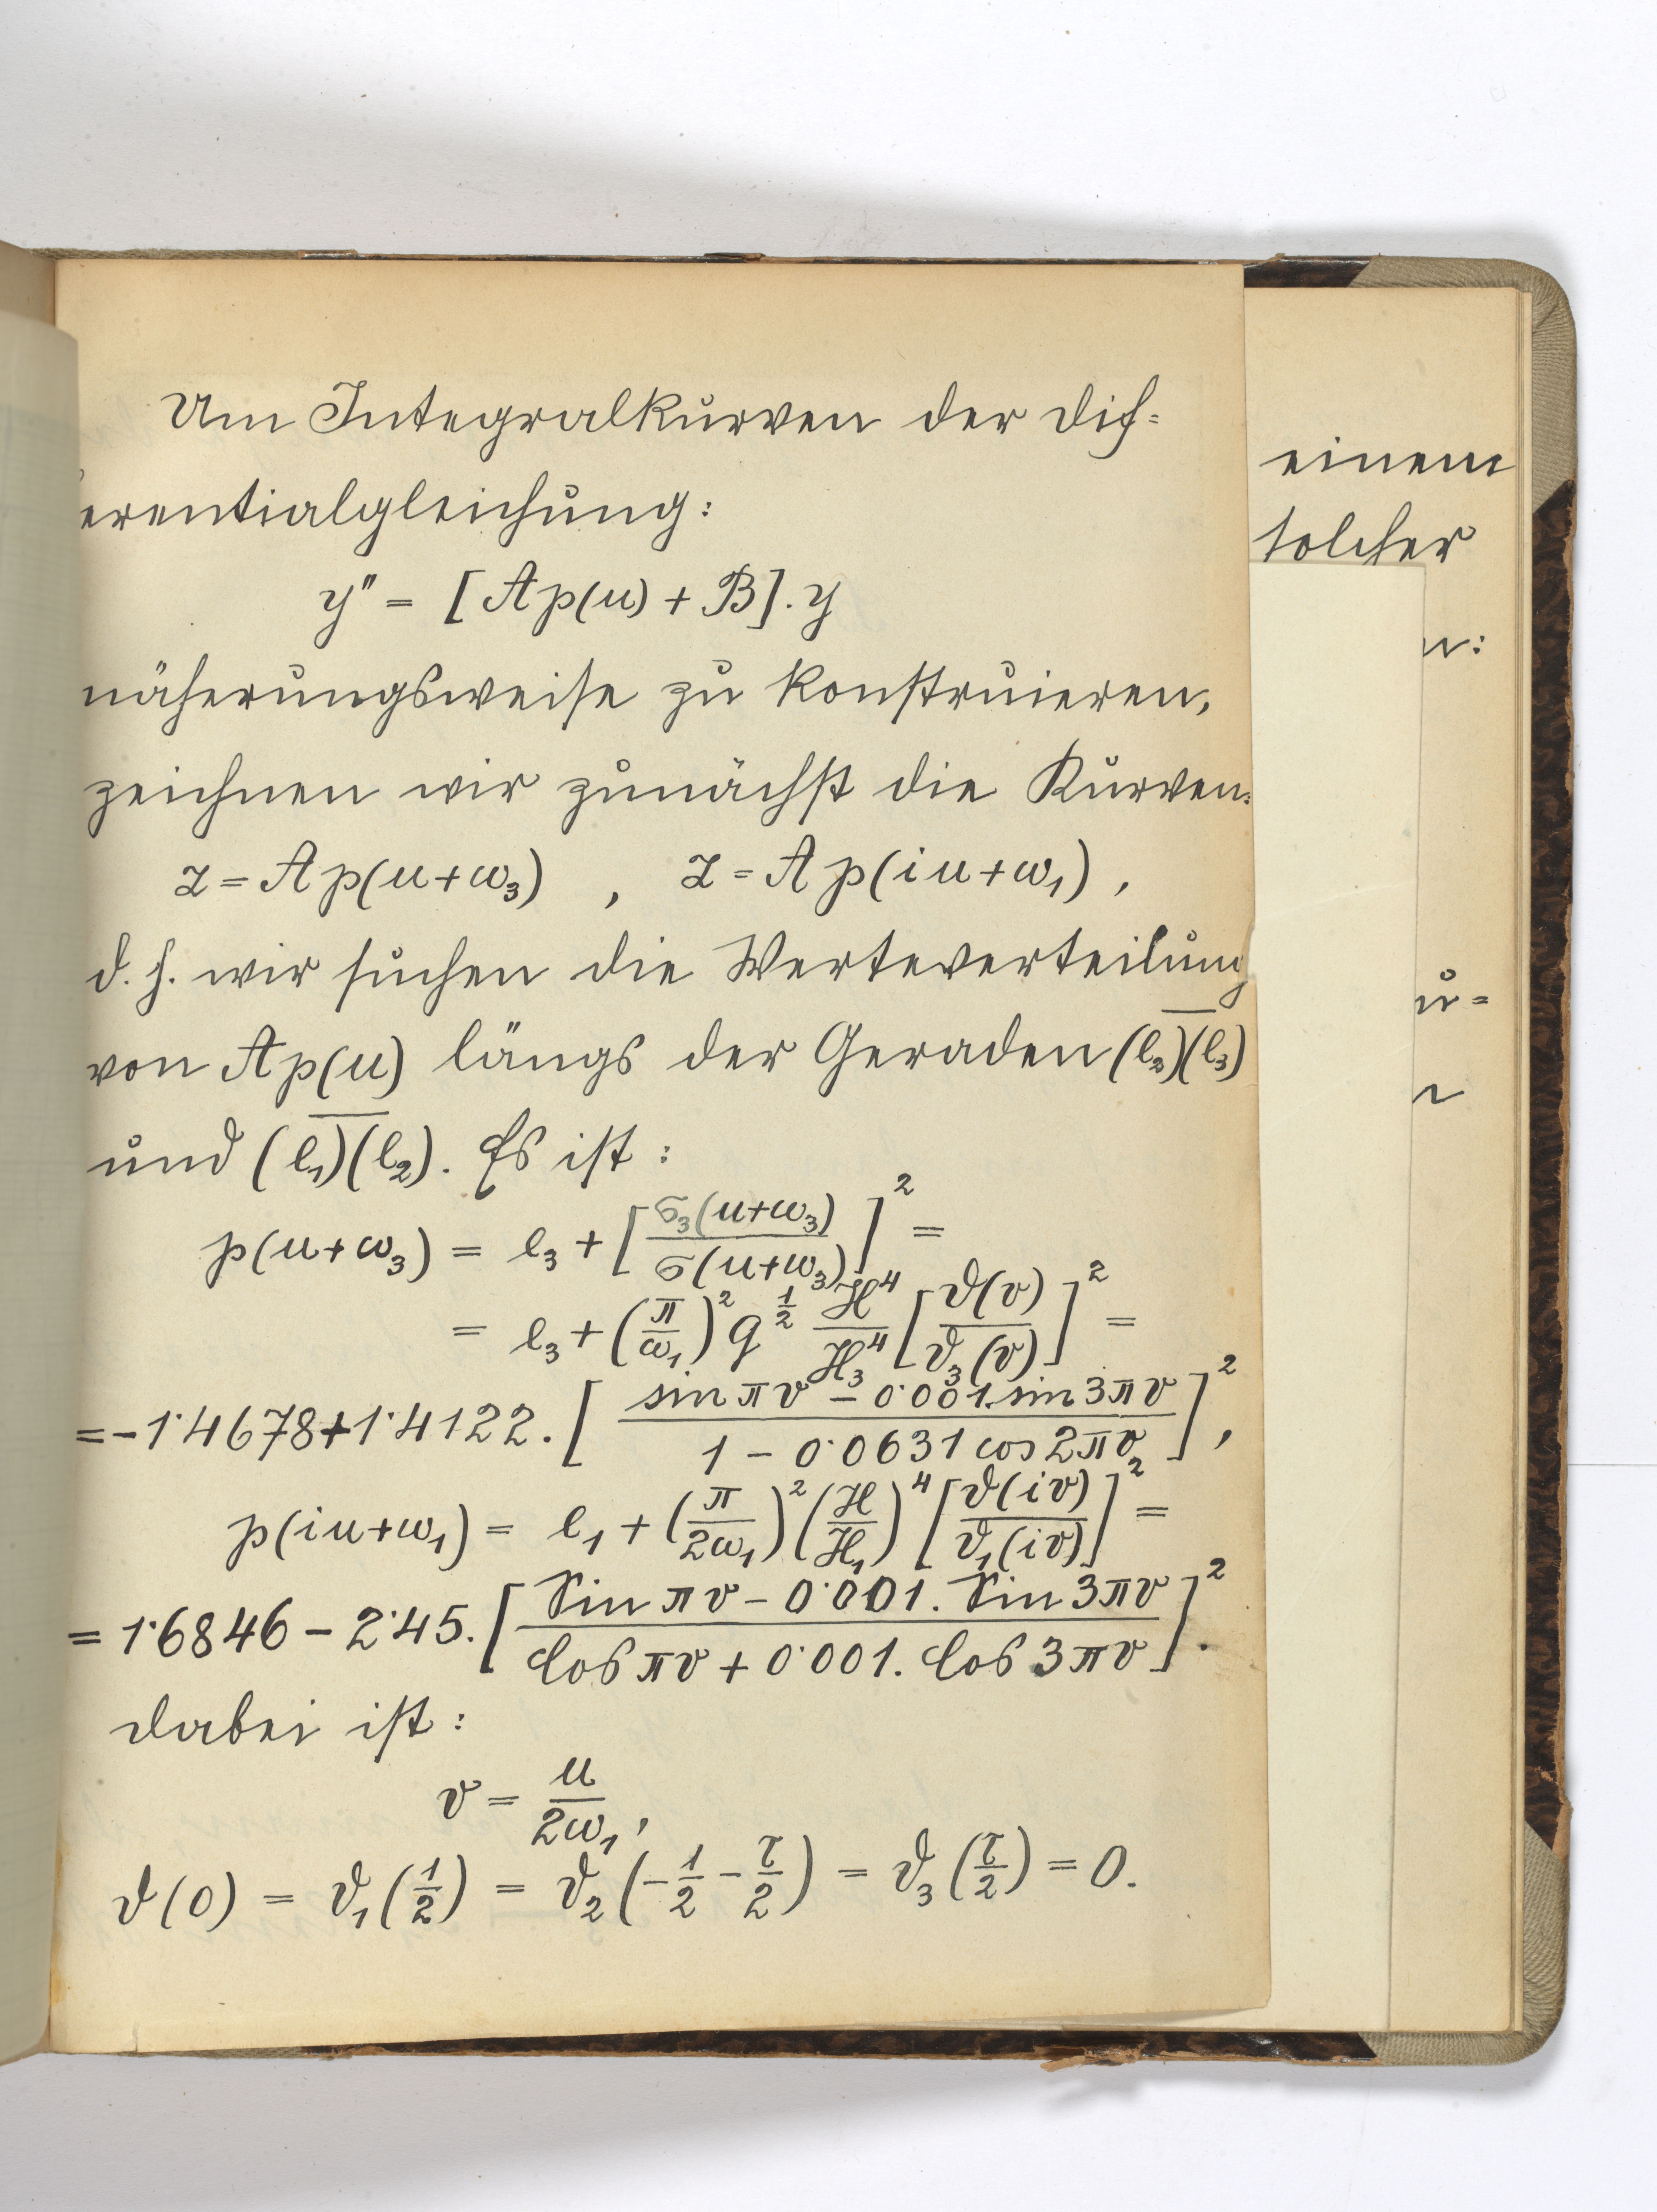 Um Integralkurven der Dif=
ferentialgleichung:
y'' = [Ap(u) + B].y
näherungsweise zu konstruieren,
zeichnen wir zunächst die Kurven:
z = Ap(u+ω₃) , z = Ap(iu+ω₁) ,
d. h. wir suchen die Werteverteilung
von Ap(u) längs der Geraden (e₂)(e₃)
und (e₁)(e₂). Es ist:
p(u+ω₃) = e₃ + [σ₃(u+ω₃) / σ(u+ω₃)]² =
= e₃ + (π/ω₁)² q^(1/2) H⁴/H₃⁴ [ϑ(v)/ϑ₃(v)]² =
= -1·4678 + 1·4122 . [(sin πv - 0·001.sin 3πv) / (1 - 0·0631 cos 2πv)]² ,
p(iu+ω₁) = e₁ + (π/2ω₁)² (H/H₁)⁴ [ϑ(iv)/ϑ₁(iv)]² =
= 1·6846 - 2·45. [(Sin πv - 0·001. Sin 3πv) / (Cos πv + 0·001. Cos 3πv)]² .
Dabei ist:
v = u/2ω₁ ,
ϑ(0) = ϑ₁(1/2) = ϑ₂(-1/2 - τ/2) = ϑ₃(τ/2) = 0.
einem
solcher
n:
u=